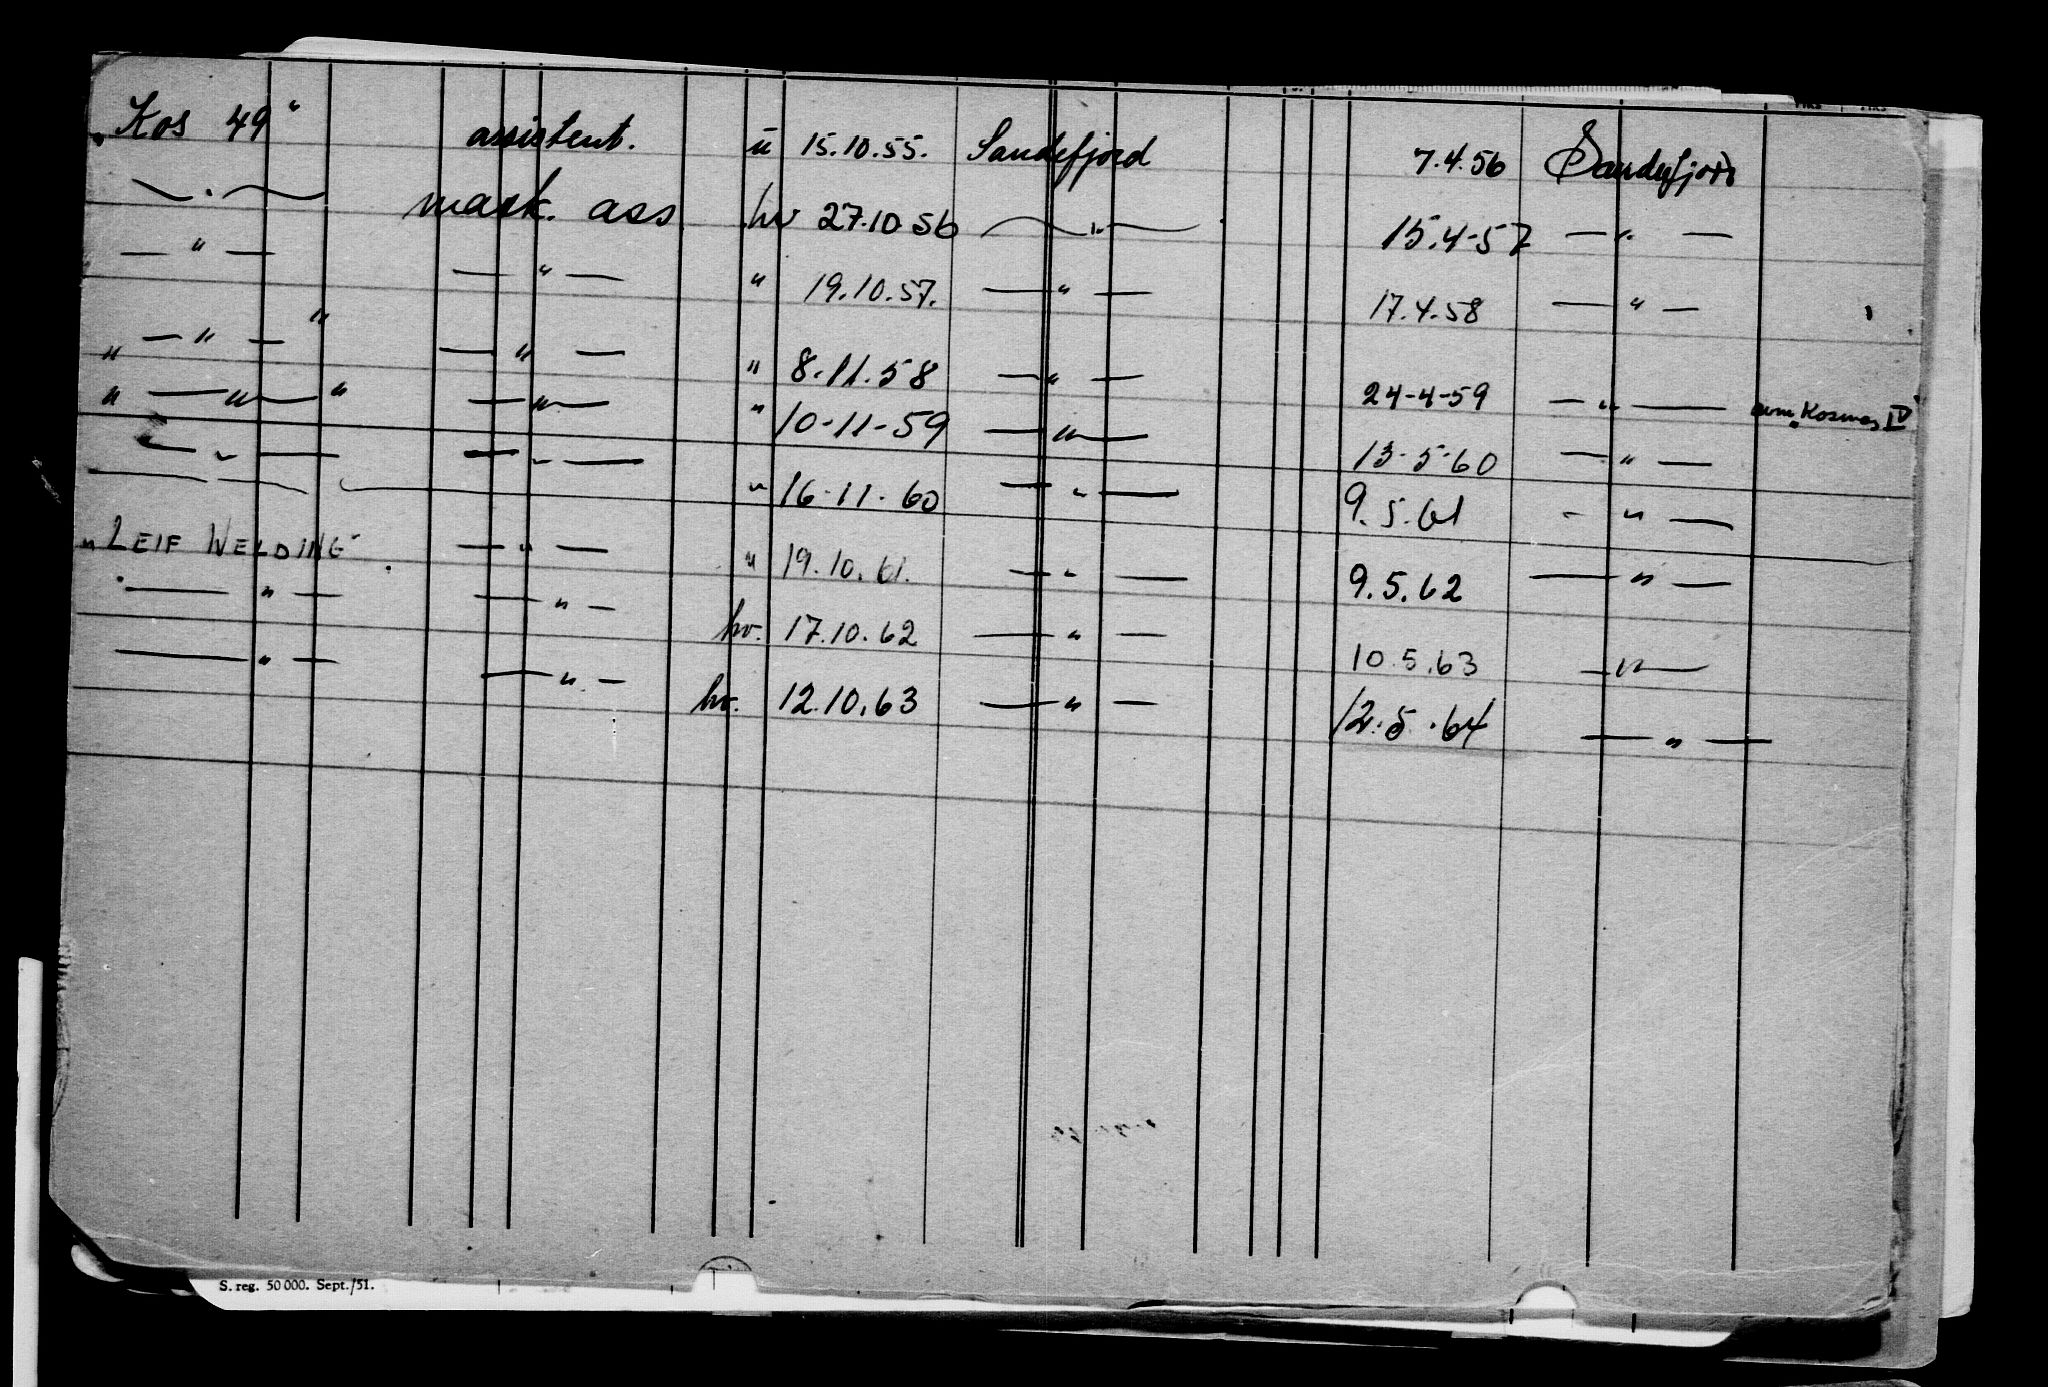 „Kos 49“ assistent. ü 15.10.55. Sandefjord 7.4.56 Sandefjord
— . — mask. ass hv 27.10 56 — " — 15.4-57 — " —
— " — — " — " 19.10.57. — " — 17.4.58 — " —
„ — " — " — " — " 8.11.58 — " — 24-4-59 — " — „Kosmos IV“
" — " — " — " — " 10-11-59 — " — 13-5-60 — " —
— " — — " — " 16-11-60 — " — 9.5.61 - " —
„LEIF WELDING“ — " — " 19.10.61. — " — 9.5.62 — " —
— " — — " — hv. 17.10.62 — " — 10.5.63 — " —
— " — — " — hv. 12.10.63 — " — 12.5.64 — " —
S. reg. 50 000. Sept./51.